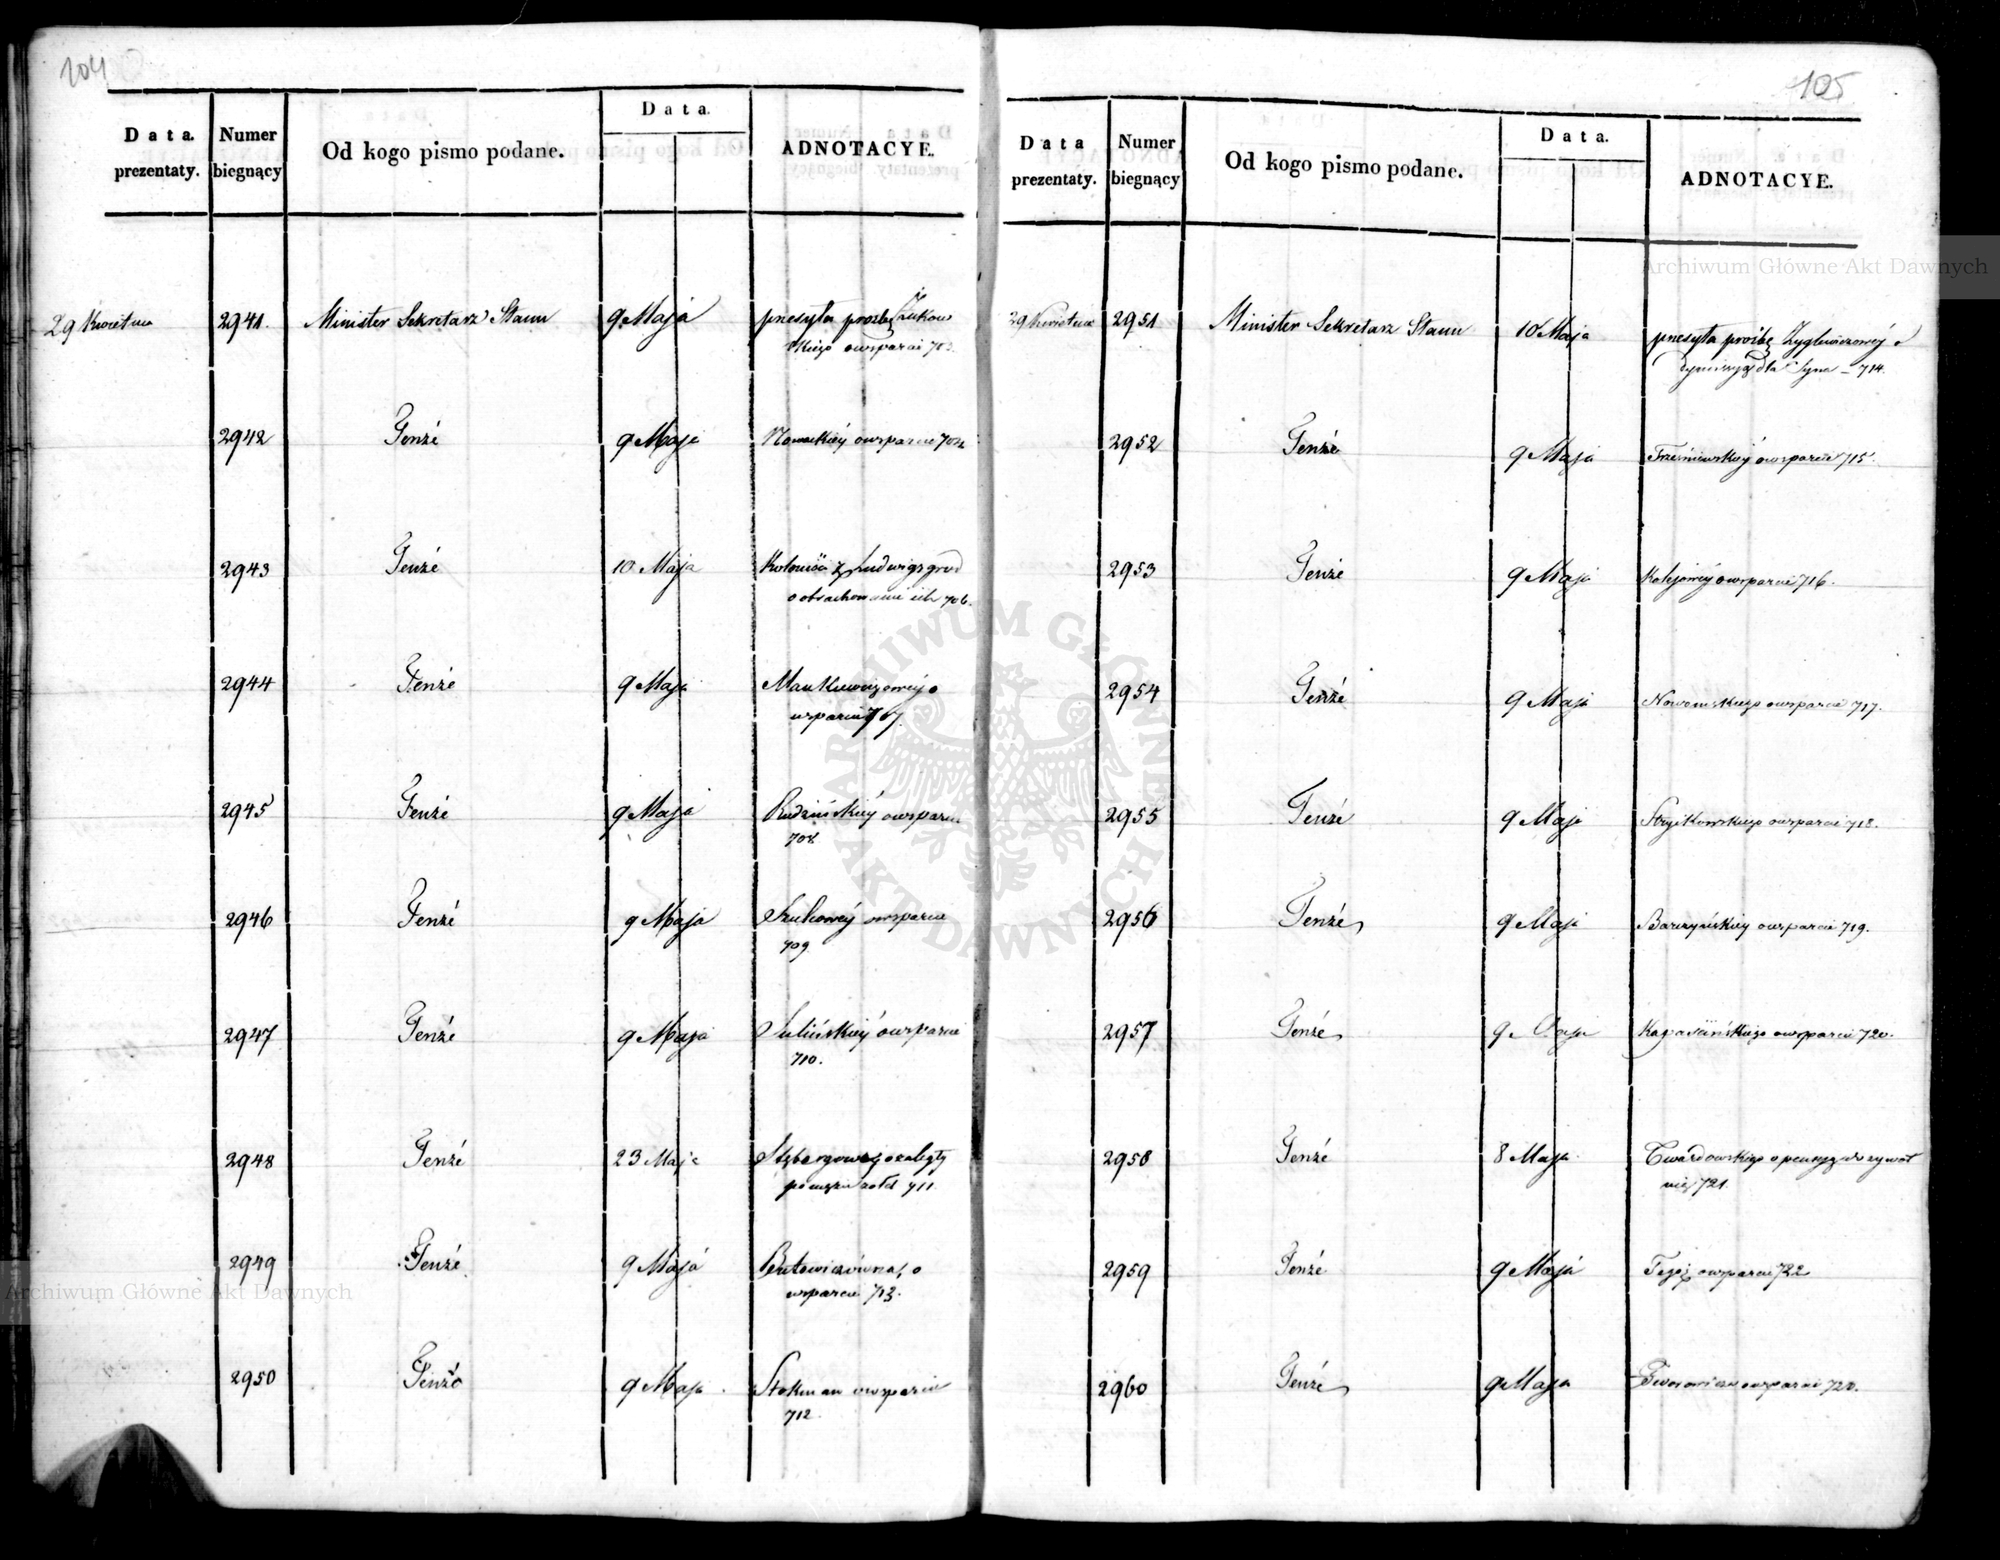 104
Data prezentaty. Numer biegnący Od kogo pismo podane. Data. ADNOTACYE.
29 Kwietnia 2941 Minister Sekretarz Stanu 9 Maja przesyła prośbę Żukow
skiego o wsparcie 703.
2942 Tenże 9 Maja Nowackiéy o wsparcie
2943 Tenże 10 Maja Kolonistów z Ludwigsgrod
o obrachowanie ich 706.
2944 Tenże 9 Maja Mankiewiczowéy o
wsparcie 707.
2945 Tenże 9 Maja Rudzińskiéy o wsparcie
708
2946 Tenże 9 Maja Szulcowéy o wsparcie
709.
2947 Tenże 9 Maja Sulińskiéy o wsparcie
710.
2948 Tenże 23 Maja o zaległy
żołd 711.
2949 Tenże 9 Maja Butowiczówna, o
wsparcie 713.
2950 Tenże 9 Maja Stokman o wsparcie
712.
105
Data prezentaty. Numer biegnący Od kogo pismo podane. Data. ADNOTACYE.
29 Kwietnia 2951 Minister Sekretarz Stanu 10 Maja przesyła prośbę
dymissyą dla Syna – 714.
2952 Tenże 9 Maja Trześniewskiéy o wsparcie 715.
2953 Tenże 9 Maja o wsparcie 716.
2954 Tenże 9 Maja o wsparcie 717.
2955 Tenże 9 Maja Stryikowskiego o wsparcie 718.
2956 Tenże 9 Maja Barczyńskiéy o wsparcie 719.
2957 Tenże 9 Maja o wsparcie 720.
2958 Tenże 8 Maja Twardowskiego o pensyą dożywot
nią 721.
2959 Tenże 9 Maja Tegoż o wsparcie 722
2960 Tenże 9 Maja o wsparcie
Archiwum Główne Akt Dawnych
ARCHIWUM GŁÓWNE AKT DAWNYCH
Archiwum Główne Akt Dawnych